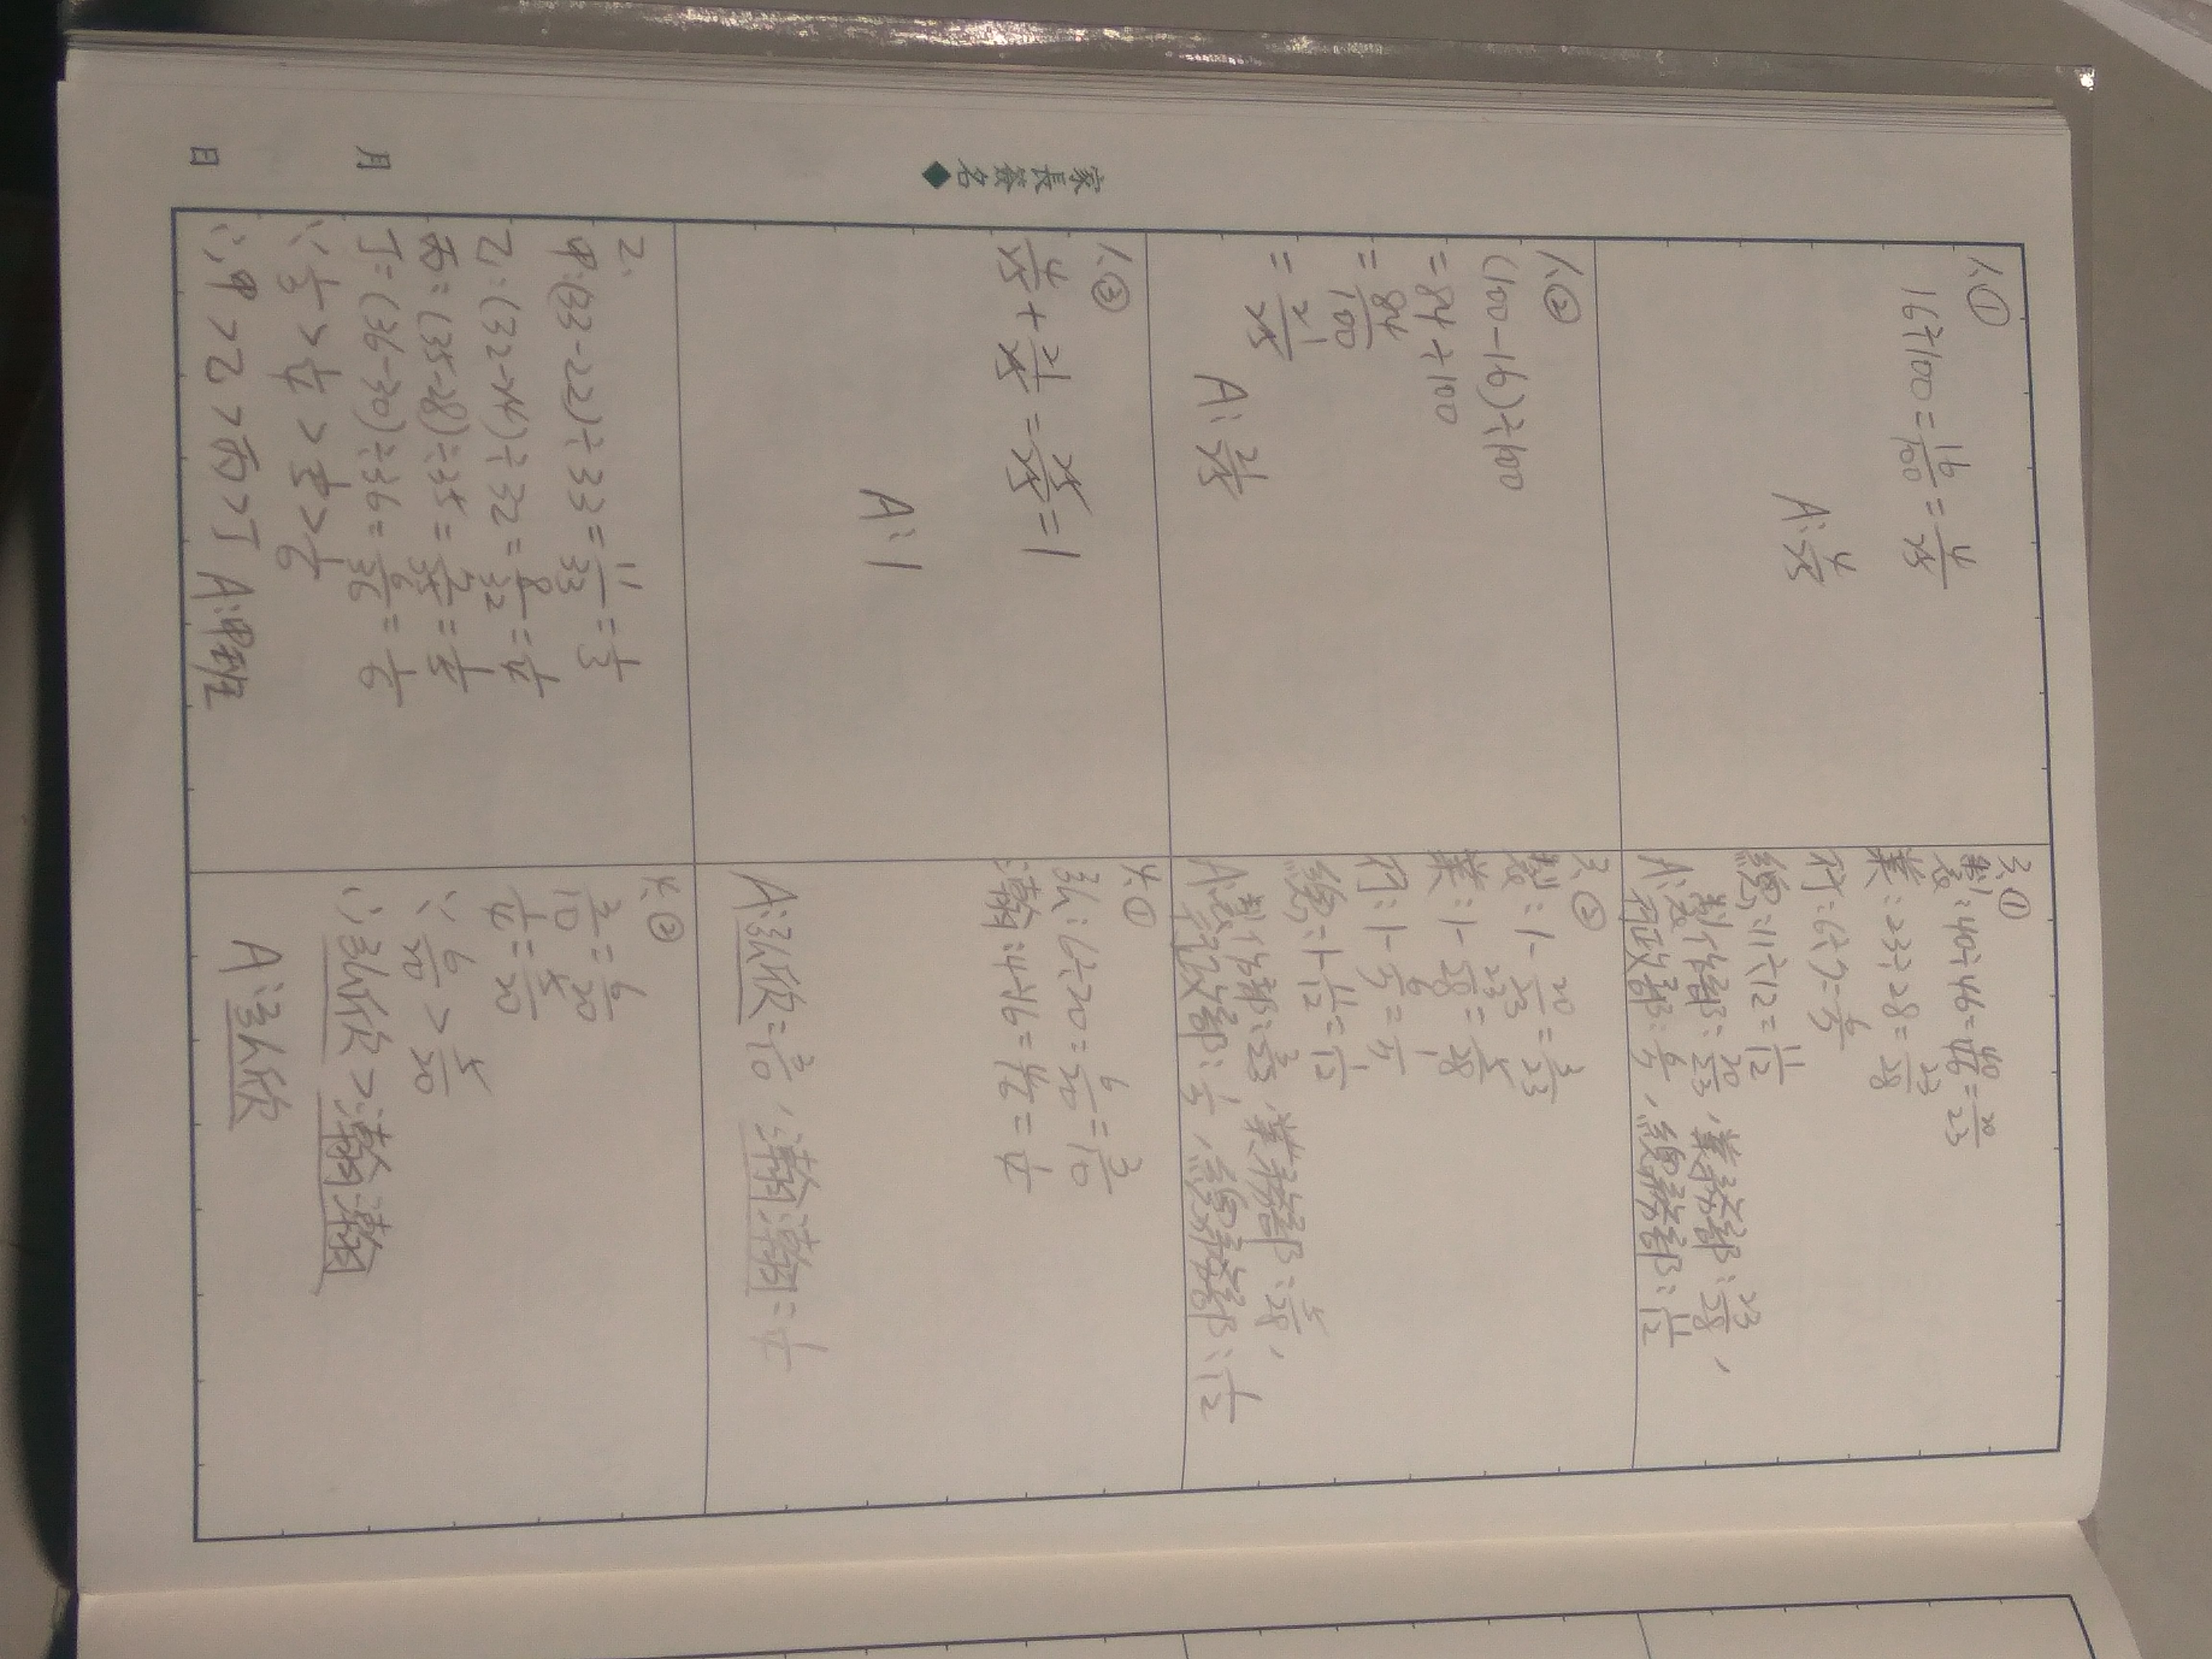 1、①
16÷100=16/100=4/25
A:4/25
1、②
(100-16)÷100
=84÷100
=84/100
=21/25
A:21/25
1、③
4/25+21/25=25/25=1
A:1
2、
甲:(33-22)÷33=11/33=1/3
乙:(32-24)÷32=8/32=1/4
丙:(35-28)÷35=7/35=1/5
丁:(36-30)÷36=6/36=1/6
∵1/3>1/4>1/5>1/6
∴甲>乙>丙>丁 A:甲班
3、①
製:40÷46=40/46=20/23
業:23÷28=23/28
行:6÷7=6/7
總:11÷12=11/12
製作部:20/23,業務部:23/28,
A:行政部:6/7,總務部:11/12
3、②
製:1-20/23=3/23
業:1-23/28=5/28
行:1-6/7=1/7
總:1-11/12=1/12
製作部:3/23,業務部:5/28,
A:行政部:1/7,總務部:1/12
4、①
弘:6÷20=6/20=3/10
瀚:4÷16=4/16=1/4
A:弘欣:3/10,瀚瀚:1/4
4、②
3/10=6/20
1/4=5/20
∵6/20>5/20
∴弘欣>瀚瀚
A:弘欣
家長簽名◆
月
日